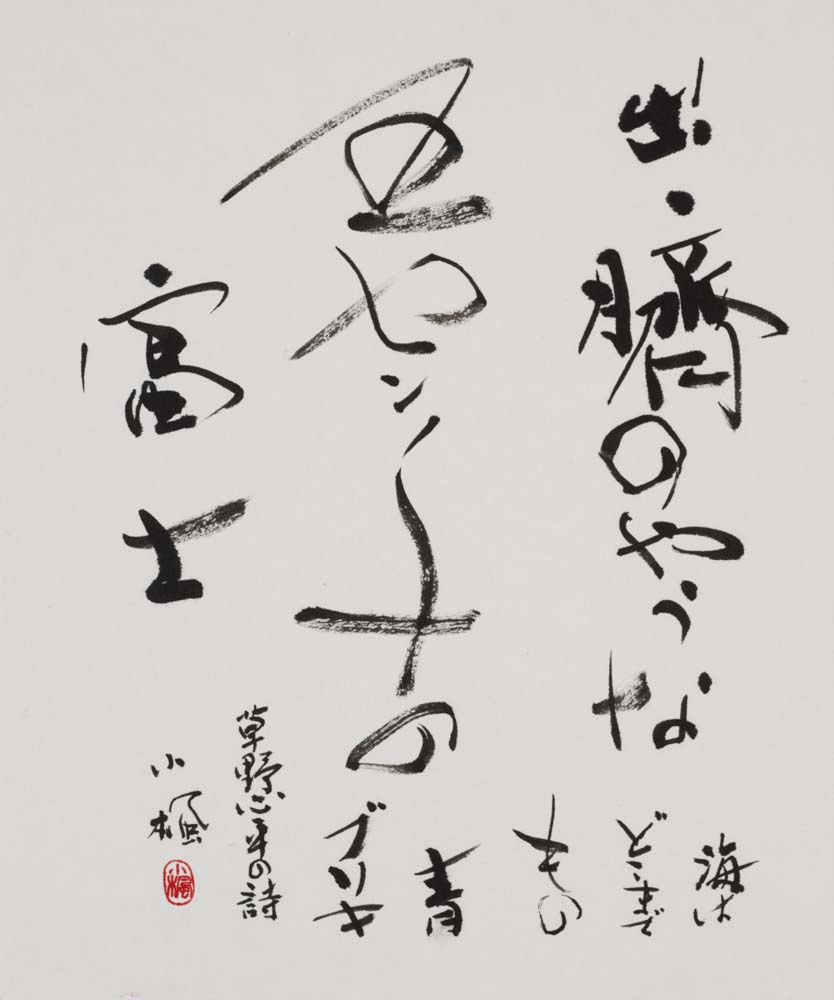 出臍のやうな
五センチの
富士
海は
どこまで
もの
青
ブリキ
草野心平の詩
小楓
小楓